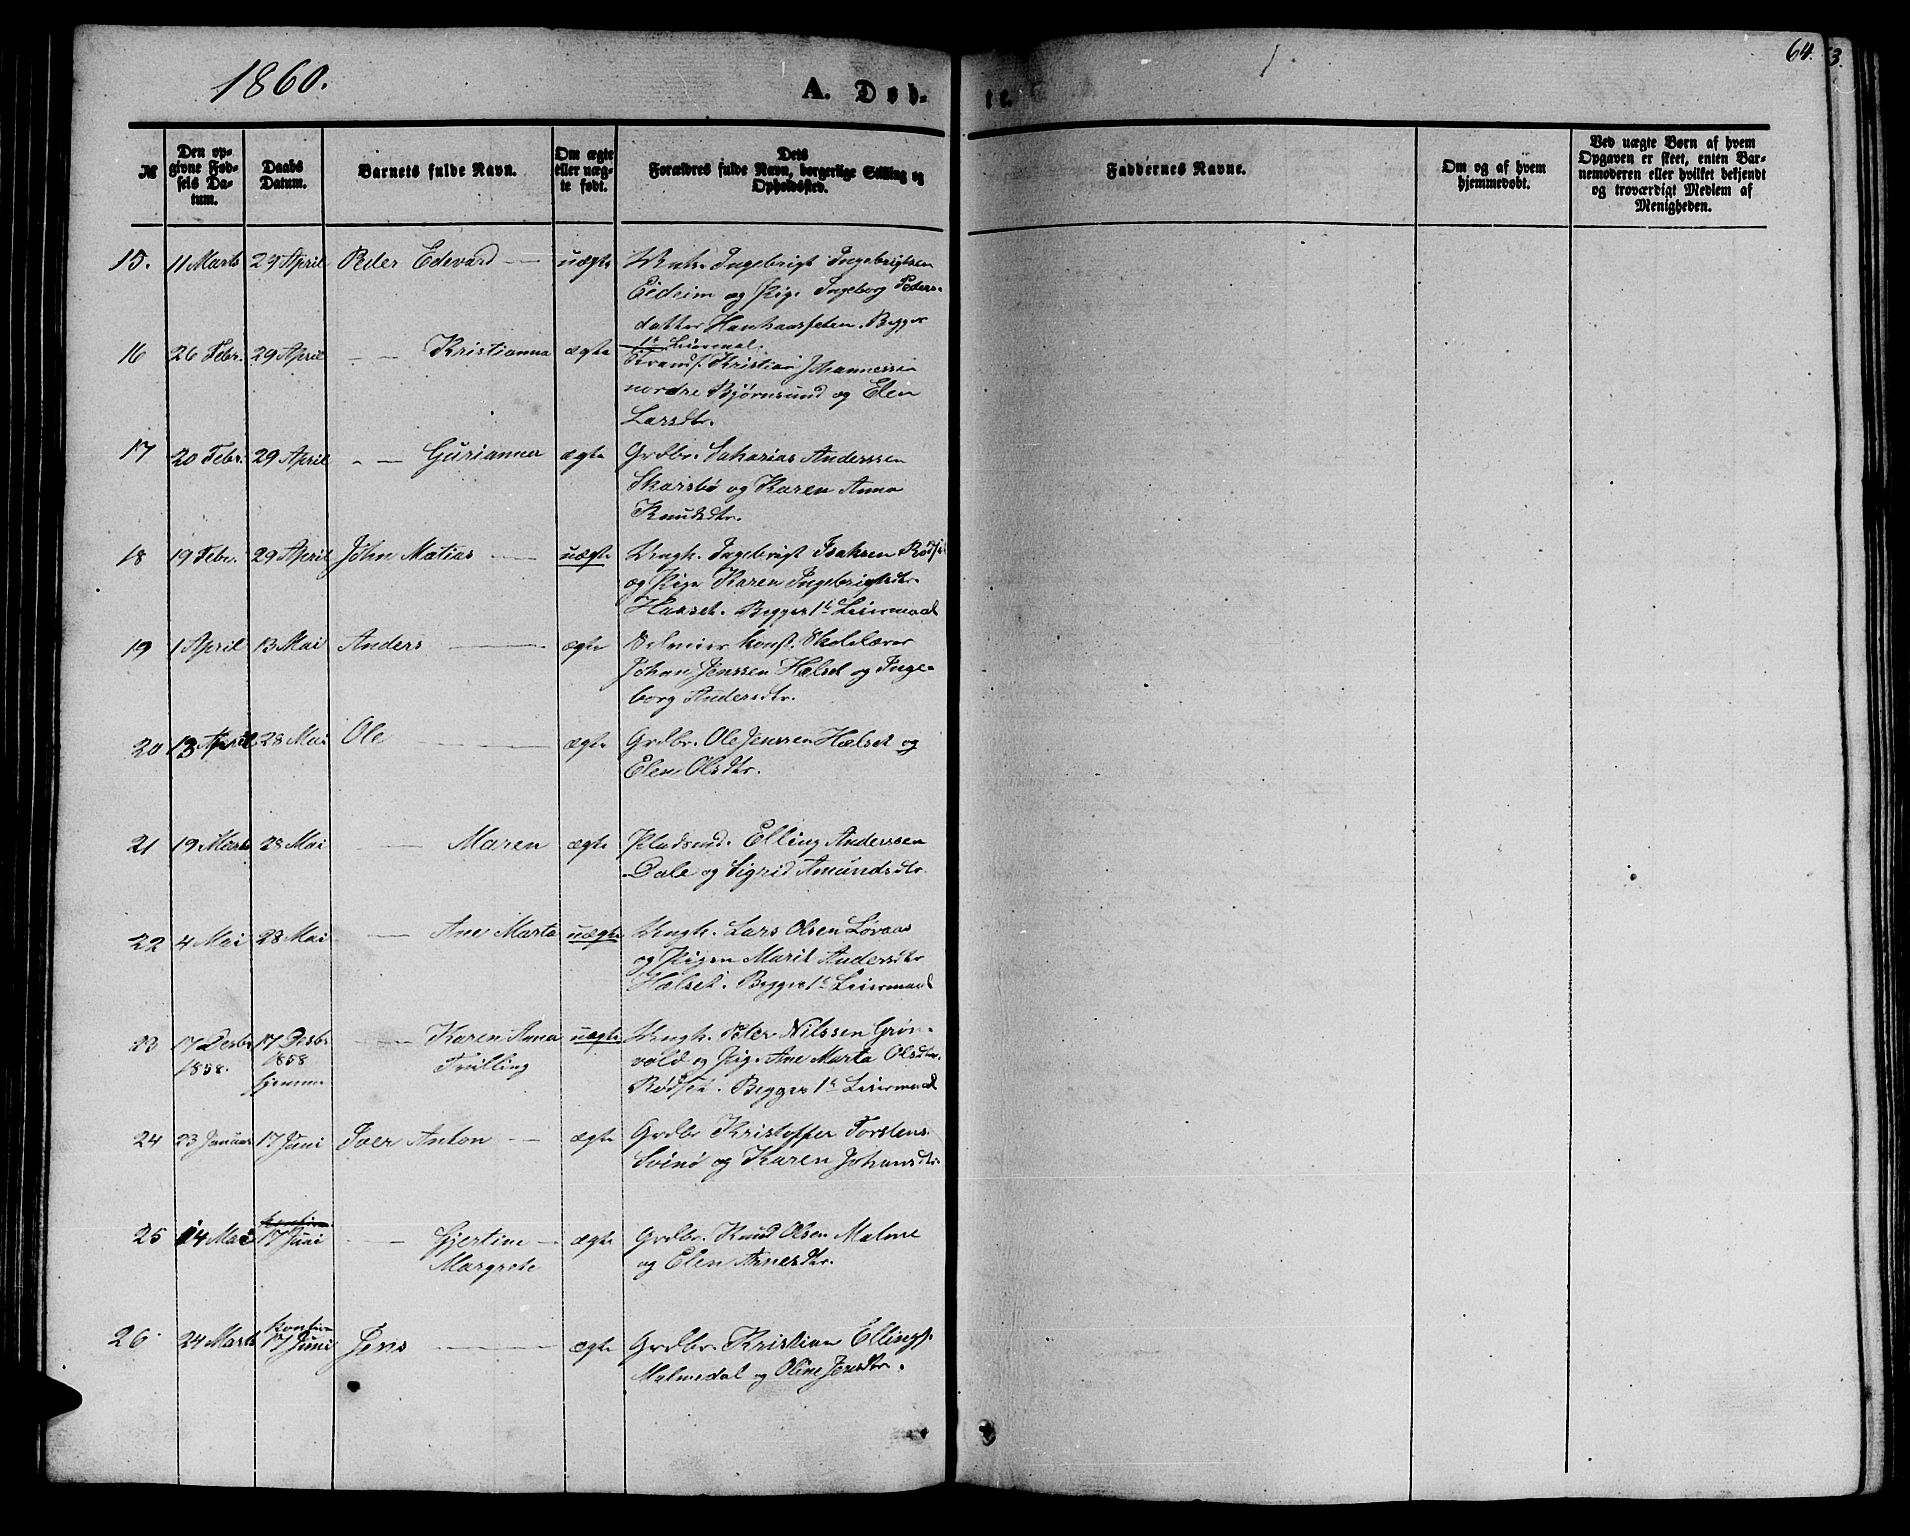 1860.
A. Døb-
te.
64.
3.
№
Den op-
givne Fød-
sels Da-
tum.
Daabs
Datum.
Barnets fulde Navn.
Om ægte
eller uæg-
te født.
Dets
Forældres fulde Navn, borgerlige Stilling og
Opholdssted.
Faddernes Navne.
Om og af hvem
hjemmedøbt.
Ved uægte Børn af hvem
Opgaven er skeet, enten Bar-
nemoderen eller hvilket bekjendt
og troværdigt Medlem af
Menigheden.
15. 11 Marts 29 April Peder Edevard — uægte Ingebrigt Ingebrigtsen
Eideim og Pige Ingeborg Peders-
datter Begges
1ste Leiermaal.
16 26 Febr. 29 April — — Kristianna ægte Strands. Kristian Johannessen
nordre Bjørnsund og Elen
Larsdtr.
17 20 Febr. 29 April — — Gurianna ægte Grdbr. Sakarias Anderssen
Skarsbø og Karen Anna
Knudsdtr.
18 19 Febr. 29 April John Matias — uægte Ungk. Ingebrigt Isaksen Rødset
og Pige Karen Ingebrigtsdtr.
Harset. Begges 1ste Leiermaal
19 1 April 13 Mai Anders — ægte Selveier konst. Skolelærer
Johan Jenssen Hælset og Inge-
borg Andersdtr.
20 13 April 28 Mai Ole — ægte Grdbr. Ole Jenssen Hælset og
Elen Olsdtr.
21 19 Marts 28 Mai — Maren ægte Pladsmd. Elling Anderssen
Dale og Sigrid Amundsdtr.
22 4 Mai 28 Mai — Ane Marta uægte Ungk. Lars Olsen Løvaas
og Pigen Marit Andersdtr.
Hælset. Begges 1ste Leiermaal
23 17 Desbr. 17 Desbr. — Karen Anna uægte Ungk. Peter Nilssen Grøn-
1858. 1858 Tvilling vold og Pig. Ane Marta Olsdtr.
hjemme Rødset. Begges 1ste Leiermaal
24 23 Januar 17 Juni Iver Anton — ægte Grdbr Kristoffer Torstens.
Svinø og Karen Johansdtr.
25 14 Mai 17 Juni — Gjertine — ægte Grdbr. Knud Olsen Malme
Margrete og Elen Arnesdtr.
26 24 Marts 17 Juni Jens — ægte Grdbr. Kristian Ellings.
Malmedal og Oline Jensdtr.